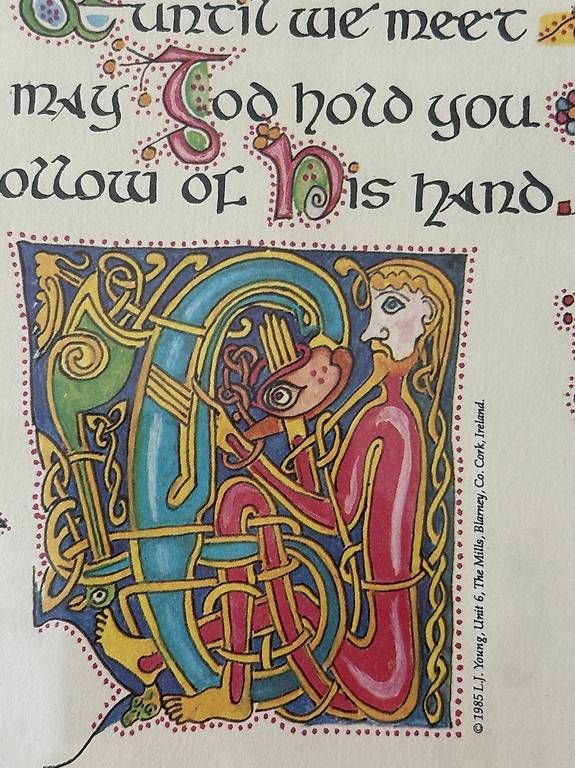 until we meet
may God hold you
ollow of His hand.
© 1985 L.J. Young, Unit 6, The Mills, Blarney, Co. Cork, Ireland.